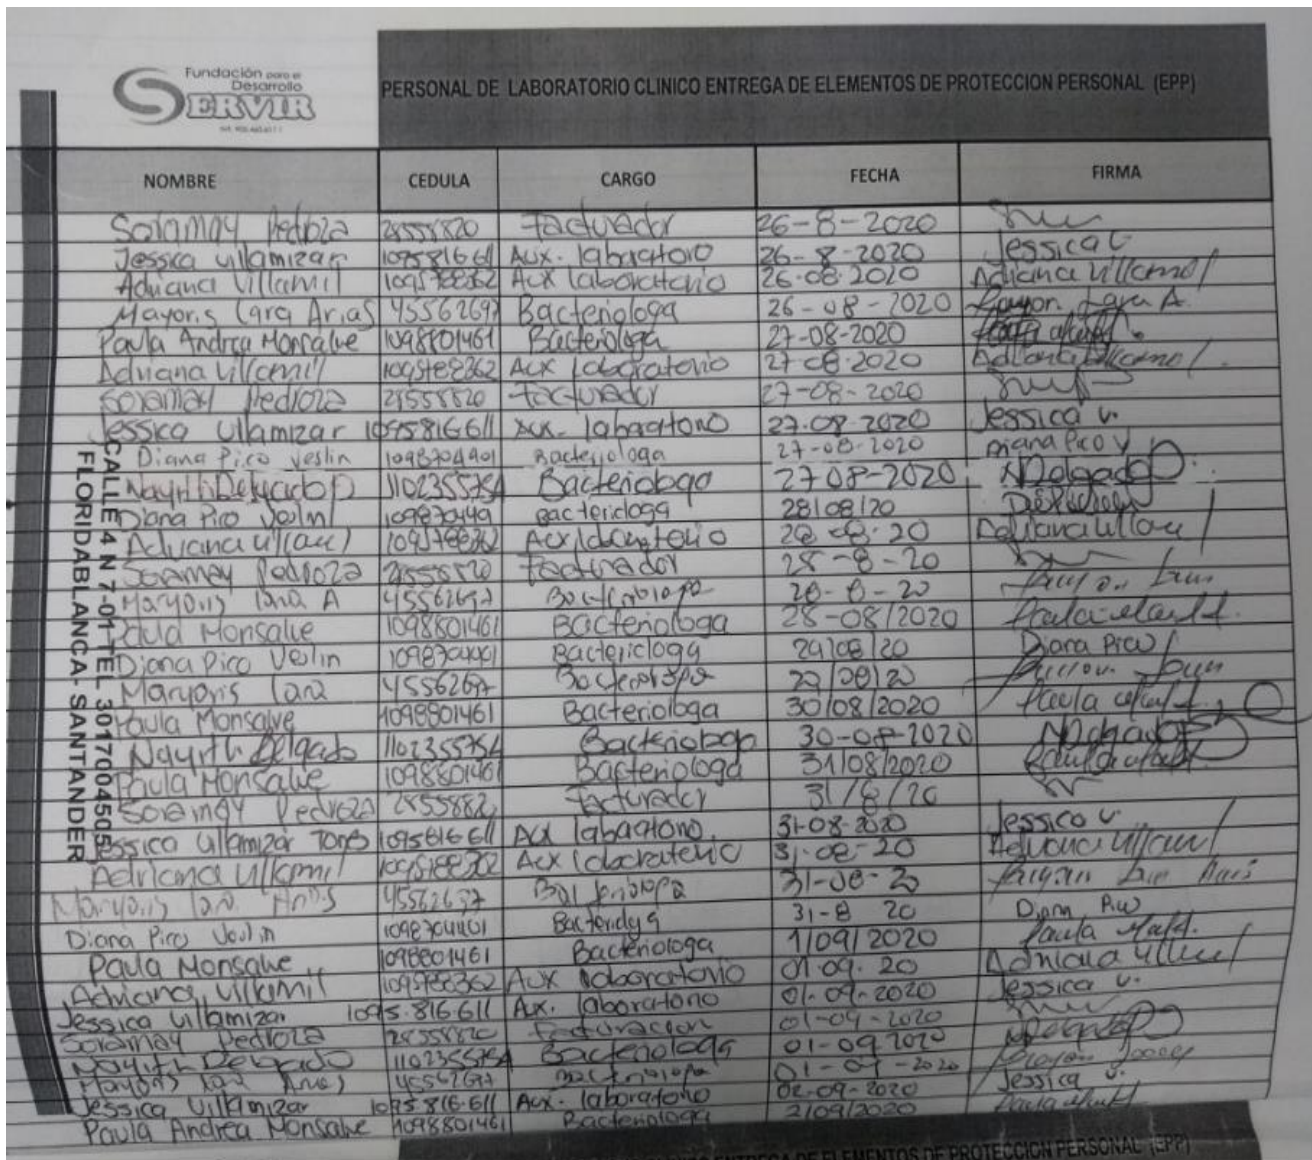 Fundación para el
Desarrollo
SERVIR
PERSONAL DE LABORATORIO CLINICO ENTREGA DE ELEMENTOS DE PROTECCION PERSONAL (EPP)
NOMBRE CEDULA CARGO FECHA FIRMA
Soramay Pedroza 28558820 Facturador 26-8-2020
Jessica Villamizar 1095816611 Aux. laboratorio 26-8-2020 Jessica V
Adriana Villamil 1095788362 Aux laboratorio 26-08-2020 Adriana Villamil
Mayoris Lara Arias 45562697 Bacteriologa 26-08-2020
Paula Andrea Monsalve 1098801461 Bacteriologa 27-08-2020
Adriana Villamil 1095788362 Aux laboratorio 27-08-2020 Adriana Villamil
Soramay Pedroza 28558820 Facturador 27-08-2020
Jessica Villamizar 1095816611 Aux. laboratorio 27-08-2020 Jessica V.
Diana Pico Veslin 1098704401 Bacteriologa 27-08-2020 Diana Pico V
Nayith Delgado 1102355754 Bacteriologa 27-08-2020 NDelgado
Diana Pico Veslin 109870449 Bacteriologa 28/08/20
Adriana Villamil 1095788362 Aux laboratorio 28-08-20 Adriana Villamil
Soramay Pedroza 28558820 Facturador 28-8-20
Maryoris Lara A 45562697 Bacteriologa 28-8-20
Paula Monsalve 1098801461 Bacteriologa 28-08/2020
Diana Pico Veslin 1098704401 Bacteriologa 29/08/20 Diana Pico
Maryoris Lara 45562697 Bacteriologa 29/08/20
Paula Monsalve 1098801461 Bacteriologa 30/08/2020
Nayith Delgado 1102355754 Bacteriologa 30-08-2020 NDelgado
Paula Monsalve 1098801461 Bacteriologa 31/08/2020
Soramay Pedroza 28558820 Facturador 31/8/20
Jessica Villamizar Torres 1095816611 Aux laboratorio. 31-08-2020 Jessica V.
Adriana Villamil 1095788362 Aux laboratorio 31-08-20 Adriana Villamil
Maryoris Lara Arias 45562697 Bacteriologa 31-08-20
Diana Pico Veslin 1098704401 Bacteriologa 31-8 20 Diana Pico
Paula Monsalve 1098801461 Bacteriologa 1/09/2020
Adriana Villamil 1095788362 Aux laboratorio 01-09-20 Adriana Villamil
Jessica Villamizar 1095.816.611 Aux. laboratorio 01-09-2020 Jessica V.
Soramay Pedroza 28558820 Facturacion 01-09-2020
Nayith Delgado 1102355754 Bacteriologa 01-09 2020 NDelgado
Maryoris Lara Arias 45562697 Bacteriologa 01-09-2020
Jessica Villamizar 1095 816-611 Aux. laboratorio 02-09-2020 Jessica V.
Paula Andrea Monsalve 1098801461 Bacteriologa 2/09/2020
CALLE 4 N 7-01 TEL 3017004505
FLORIDABLANCA- SANTANDER
ENTREGA DE ELEMENTOS DE PROTECCION PERSONAL (EPP)